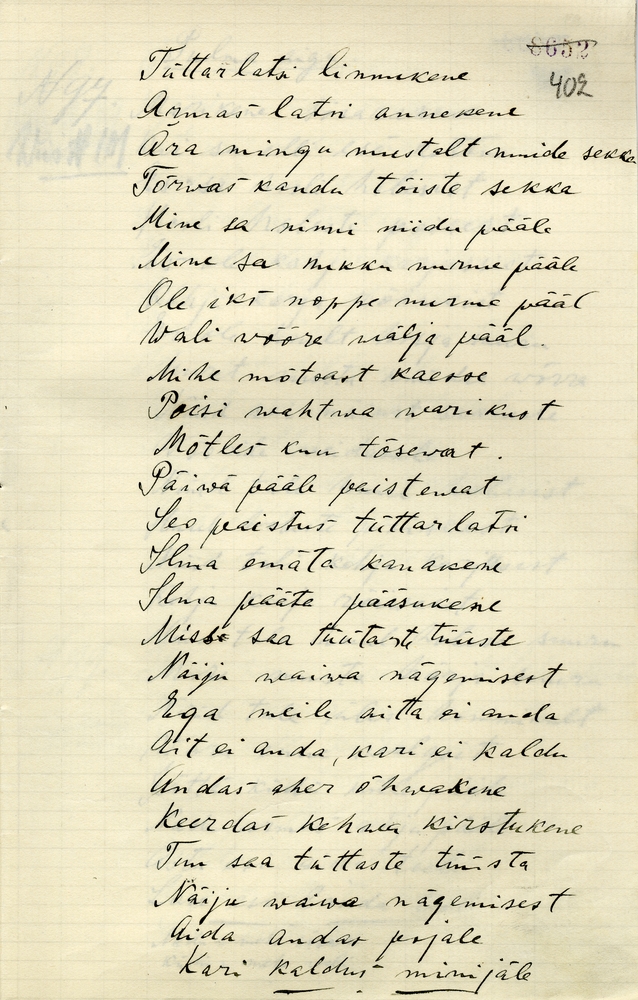 8652
402
Tüttarlatsi linnukene
Armas latsi annekene
Ära mingu mustalt muide sekka
Tõrwas kandu tõiste sekka
Mine sa ninni niidu pääle
Mine sa nukku nurme pääle
Ole iks noppe nurme pääl
Wali wööre wälja pääl.
Mihe mõtsast kaesse
Poisi wahtwa warikust
Mõtles kuu tõsewat.
Päiwä pääle paistewat
Seo paistus tüttarlatsi
Ilma emäta kanakene
Ilma pääta pääsukene
Misse saa tüütarte tüüste
Näiju waiwa nägemisest
Ega meile aitta ei anda
Ait ei anda, kari ei kaldu
Andas aher õhwakene
Keerdas kehwa kirstukene
Tuu saa tüttaste tüüsta
Näiju waiwa nägemisest
Aida andas pojale
Kari kaldus minijäle